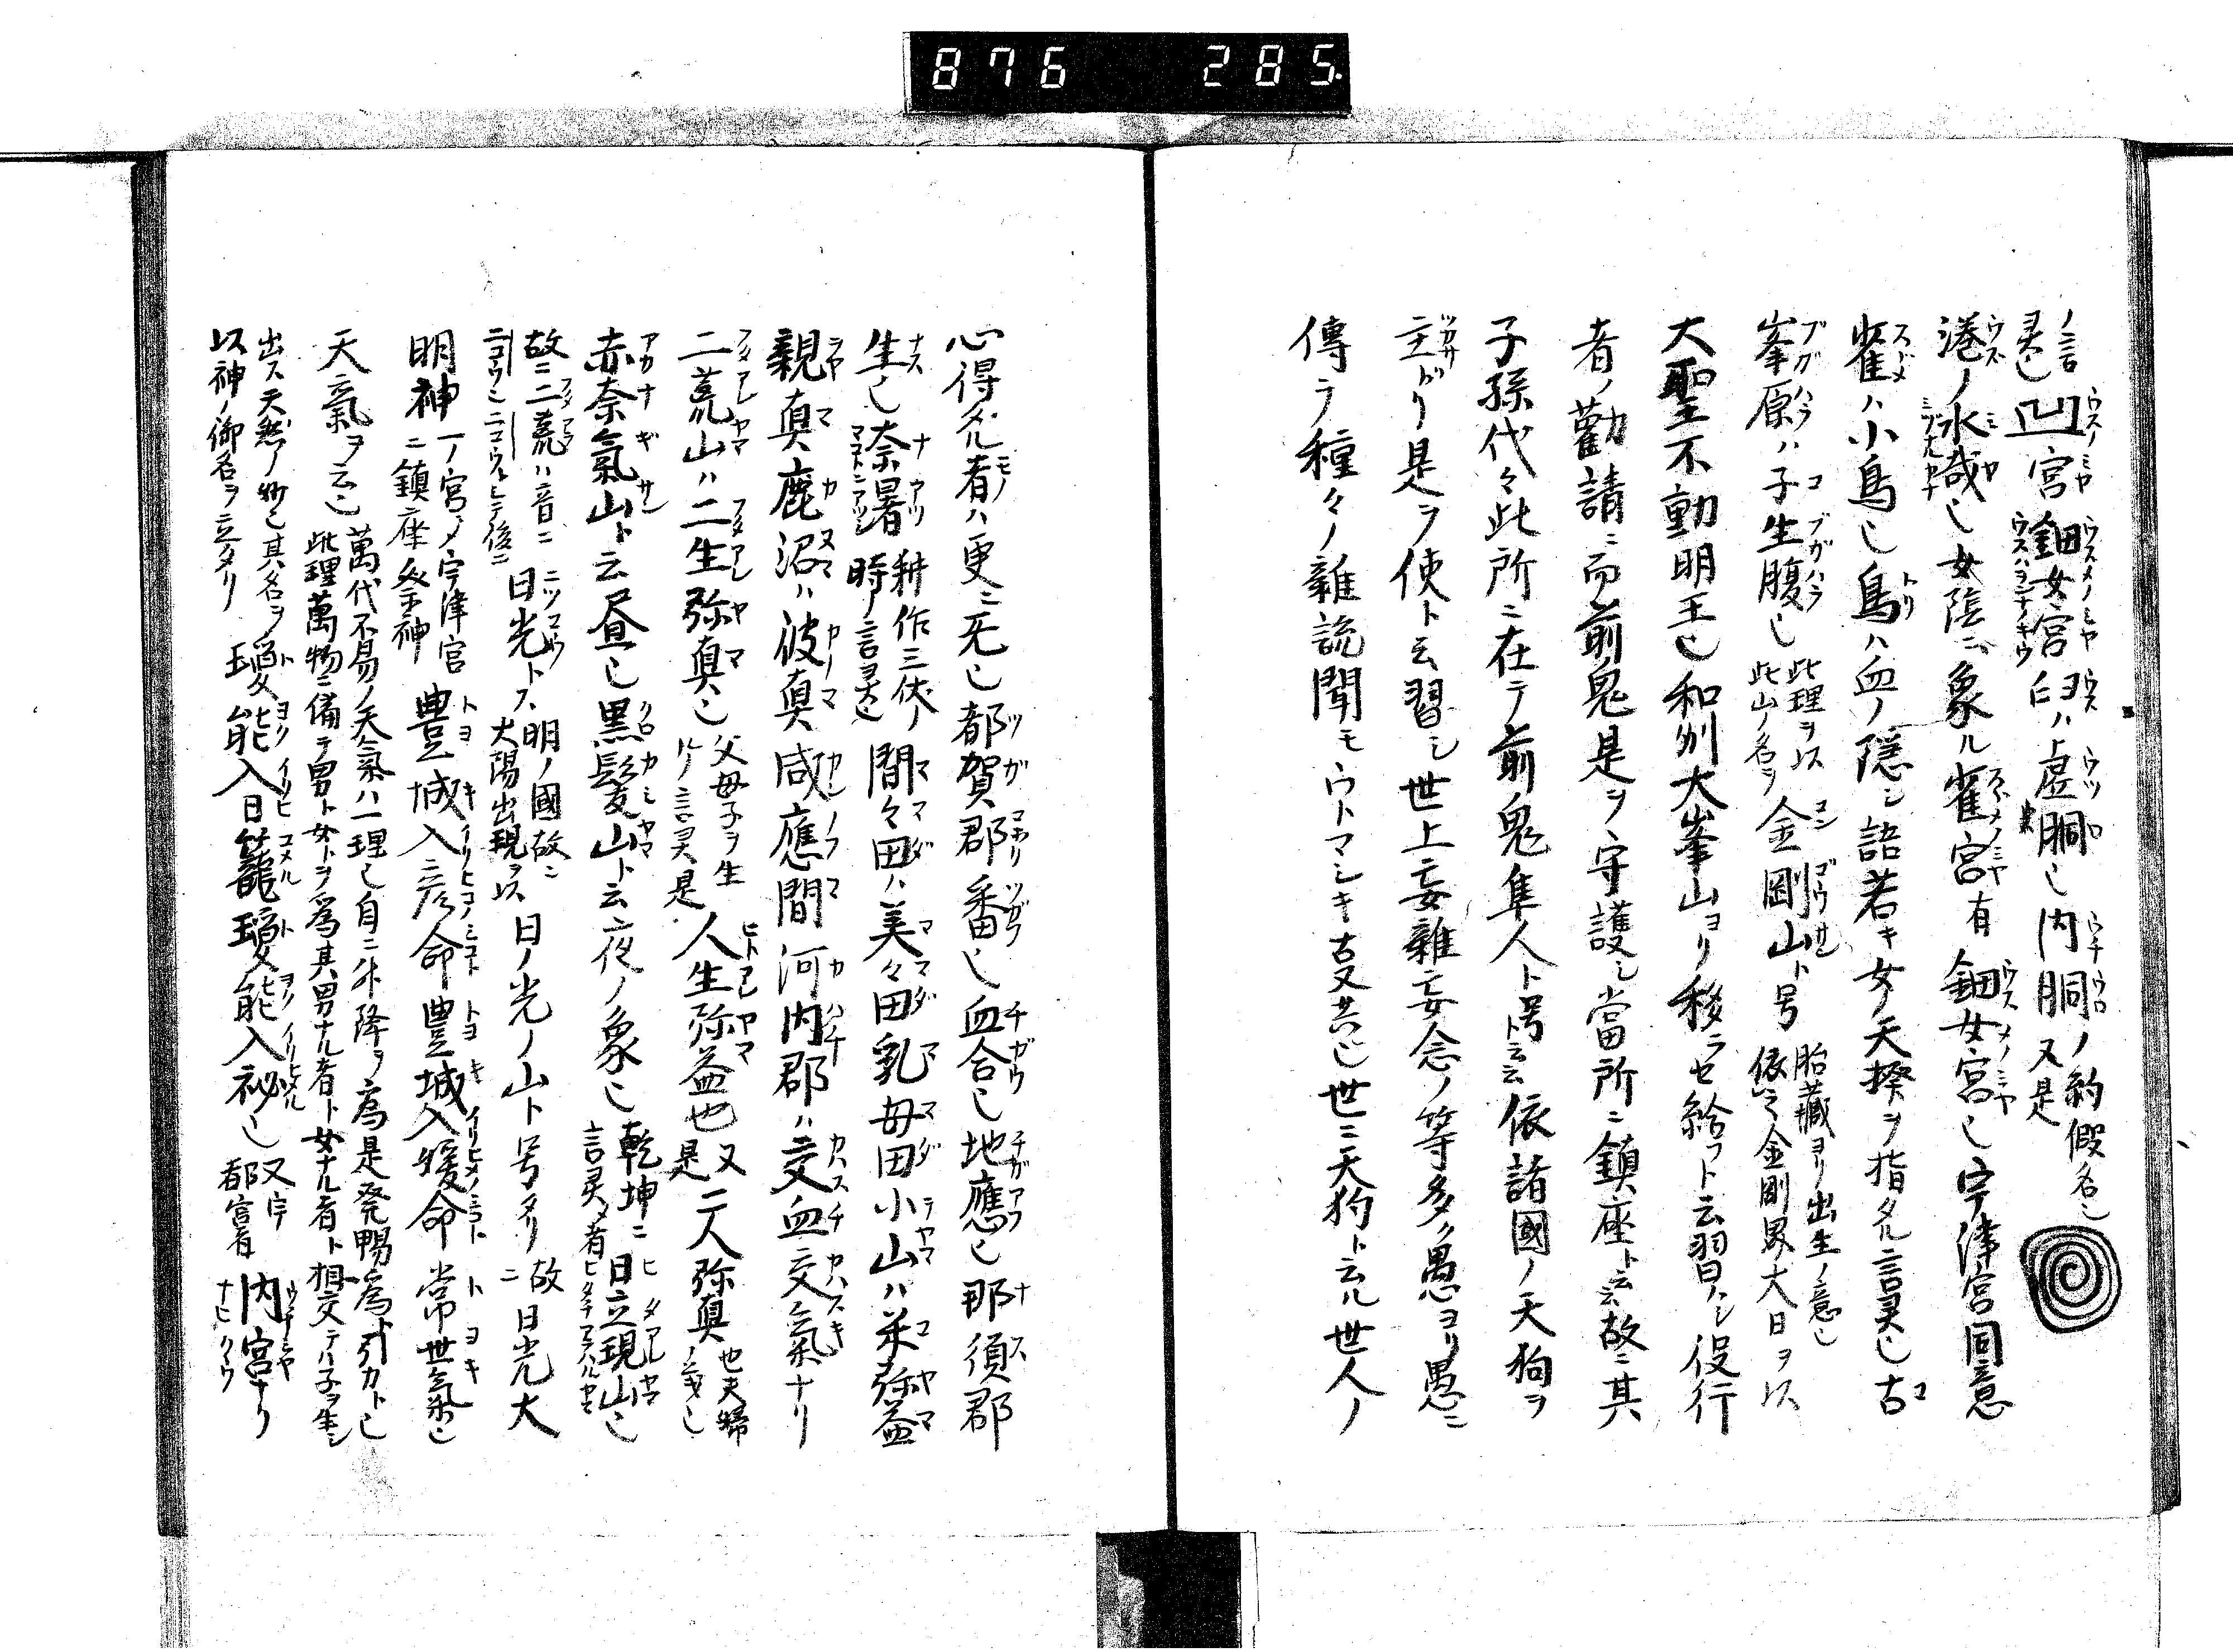 876 285
ノ言灵也 凹宮 鈿女宮 臼ハ上虚胴也内胴ノ約假名也 又是
港ノ水咸也女陰ニ象ル雀宮有鈿女宮也宇津宮同意
雀ハ小鳥也鳥ハ血ノ隠シ語若キ女ノ天揆ヲ指タル言灵也古
峯原ハ子生腹也 此理ヲ以此山ノ名ヲ 金剛山ト号 胎藏ヨリ出生ノ意也依之金剛界大日ヲ以
大聖不動明王也和州大峯山ヨリ移ラセ給フト云習ハシ役行
者ノ勸請ニ而前鬼是ヲ守護シ當所ニ鎮座ト云故ニ其
子孫代々此所ニ在テ前鬼隼人ト号ト云云依諸國ノ天狗ヲ
主ドリ是ヲ使ト云習シ世上妄雜妄念ノ等多ク愚ヨリ愚ニ
傳ヲ種々ノ雜説聞モウトマシキ古文共也世ニ天狗ト云ル世人ノ
心得タル者ハ更ニ无也都賀郡番也血合也地應也那須郡
生也奈暑 耕作三伏ノ時ノ言灵也 間々田ハ美々田乳母田小山ハ米弥益
親真鹿沼ハ彼真咸應間河内郡ハ交血交氣ナリ
二荒山ハ二生弥真也 父母子ヲ生ルノ言灵是 人生弥益也 又是 二人弥真 也夫婦ノ義也
赤奈氣山ト云昼也黒髪山ト云夜ノ象也 乾坤ニ言灵者 日立現山也
故ニ二荒ハ音ニニコウ也ニコウトヒテ後ニ 日光トス 明ノ國故ニ大陽出現ヲ以 日ノ光ノ山ト号タリ 故ニ 日光大
明神 一ノ宮宇津宮ニ鎮座祭神 豊城入彦命豊城入媛命常世氣也
天氣ヲ云也 萬代不易ノ天氣ハ一理也自ニ外降ヲ為是発暢為引カト也此理萬物ニ備テ男ト女トヲ為其男ナル者ト女ナル者ト相交テハ子ヲ生シ
出ス天然ノ妙也其名ヲ以神ノ御名ヲ立タリ 能入日籠 能入祕也 又宇都宮者 内宮ナリ